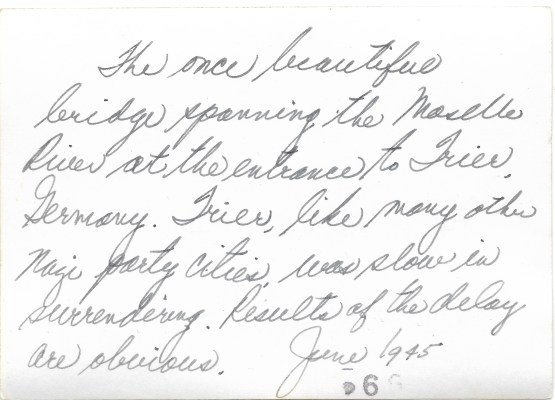 The once beautiful
bridge spanning the Moselle
River at the entrance to Trier,
Germany. Trier, like many other
Nazi party cities, was slow in
surrendering. Results of the delay
are obvious. June 1945
96